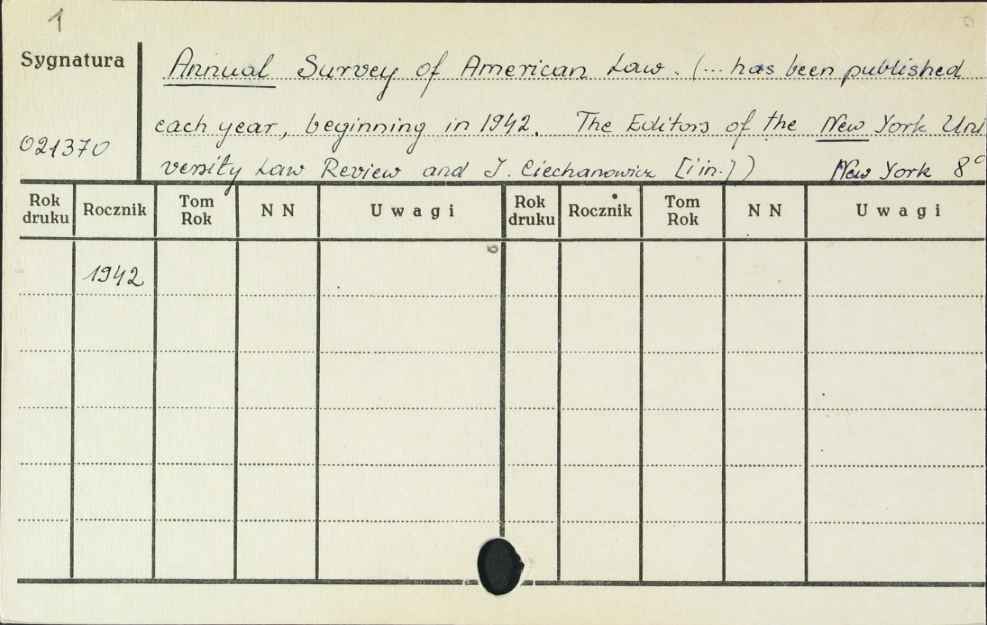 1
Sygnatura
Annual Survey of American Law. (... has been published
each year, beginning in 1942. The Editors of the New York Uni
021370
versity Law Review and J. Ciechanowicz [i in.]) New York 8°
Rok druku Rocznik Tom Rok N N Uwagi Rok druku Rocznik Tom Rok N N Uwagi
1942